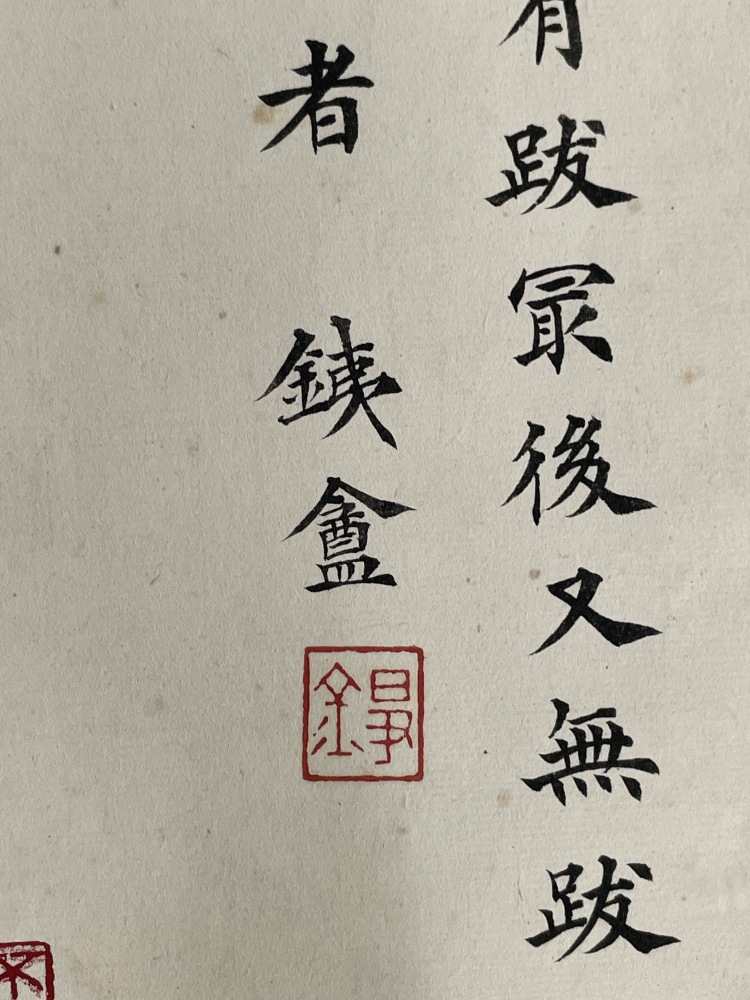 有跋冣後又無跋
者　銕盦